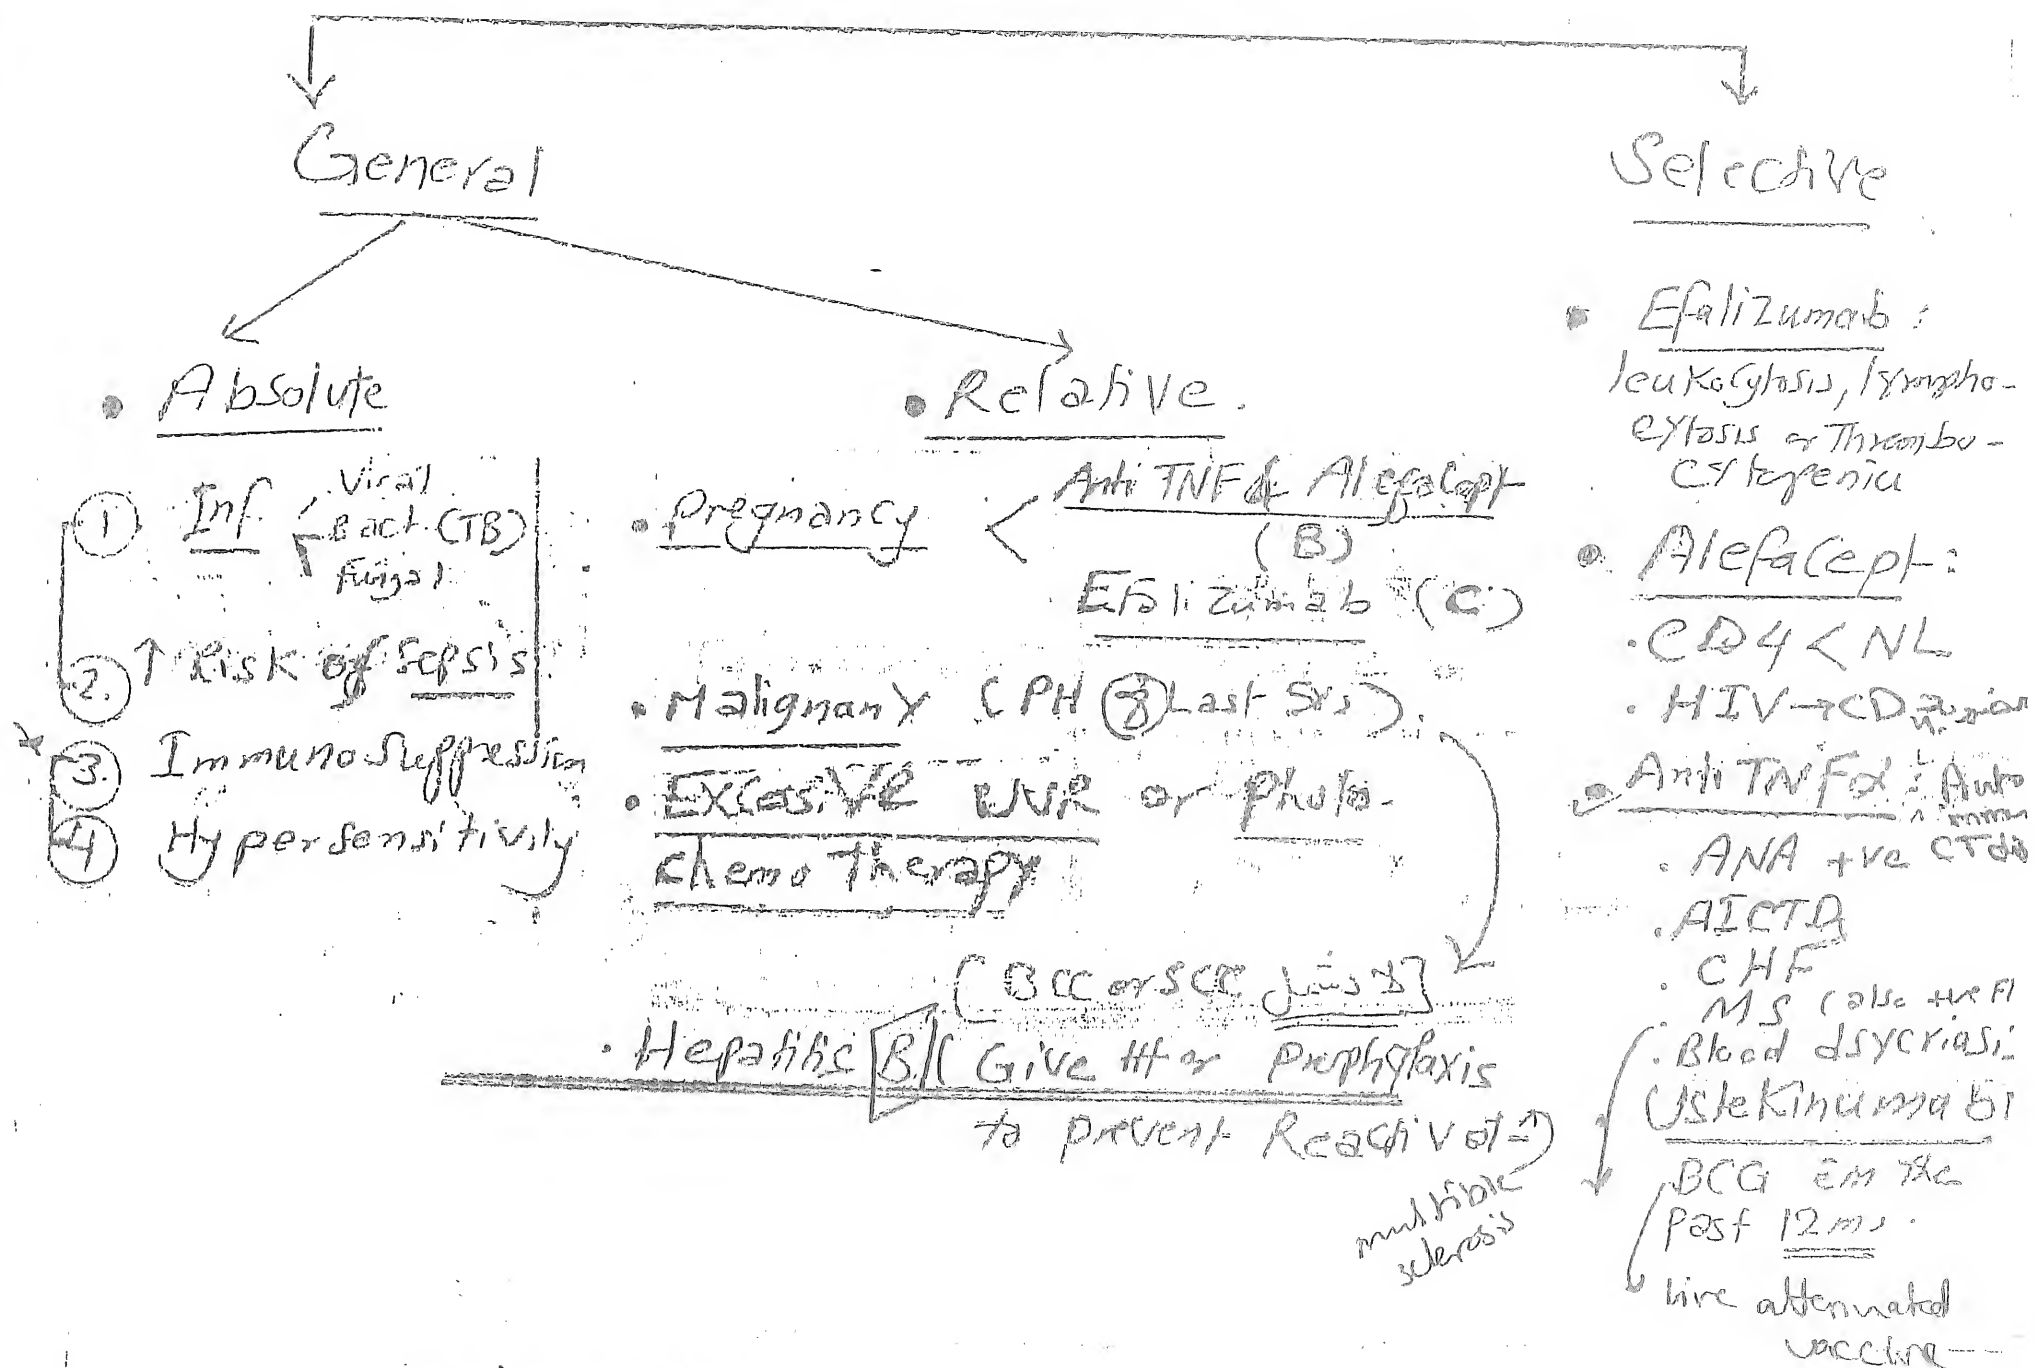 General
Selective
• Absolute
① Inf.
Viral
Bact (TB)
Fungal
2. ↑ Risk of sepsis.
3. Immunosuppression
4 Hypersensitivity
• Relative.
• Pregnancy < Anti TNFα Alefacept
(B)
Efalizumab (C)
• Malignany (PH Last 5ys).
• Excesive UVR or photo-
chemo Therapy
[BCC or SCC]
• Hepatitis B (Give ttt or Prophylaxis
to prevent Reactivat)
multible
sclerosis
• Efalizumab :
leukocytosis, lympho-
cytosis or Thrombo-
cytopenia
• Alefacept :
• CD4 < NL
• HIV → CD
• Anti TNFα : Auto
immu
CT dis
• ANA +ve
• AICTD
• CHF
• MS (also +ve F
• Blood dsycriasi
Ustekinumab
BCG in the
past 12 ms.
live attenuated
vaccine